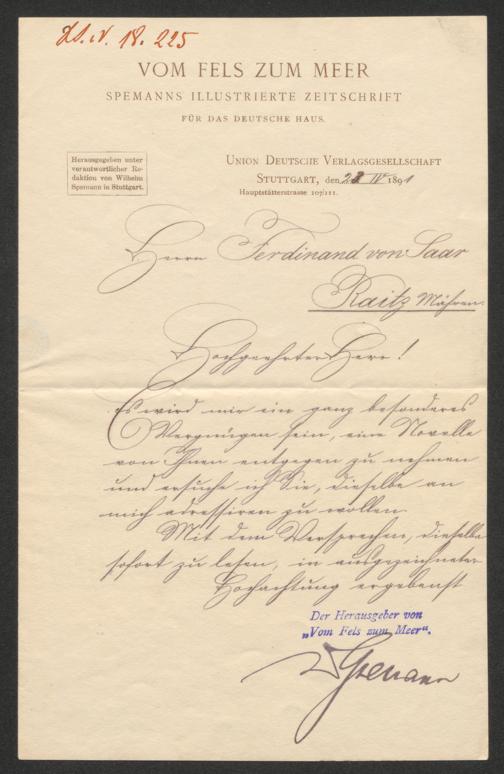 VOM FELS ZUM MEER
SPEMANNS ILLUSTRIERTE ZEITSCHRIFT
FÜR DAS DEUTSCHE HAUS.
Herausgegeben unter
verantwortlicher Re-
daktion von Wilhelm
Spemann in Stuttgart.
UNION DEUTSCHE VERLAGSGESELLSCHAFT
STUTTGART, den IV 1891
Hauptstätterstrasse 107/111.
Herrn Ferdinand von Saar
Raitz Mähren.
Hochgeehrter Herr!
Es wird mir ein ganz besonderes
Vergnügen sein, eine Novelle
von Ihnen entgegen zu nehmen
und ersuche ich Sie, dieselbe an
mich adressiren zu wollen.
Mit dem Versprechen, dieselbe
sofort zu lesen, in ausgezeichneter
Hochachtung ergebenst
Der Herausgeber von
„Vom Fels zum Meer“.
WSpemann